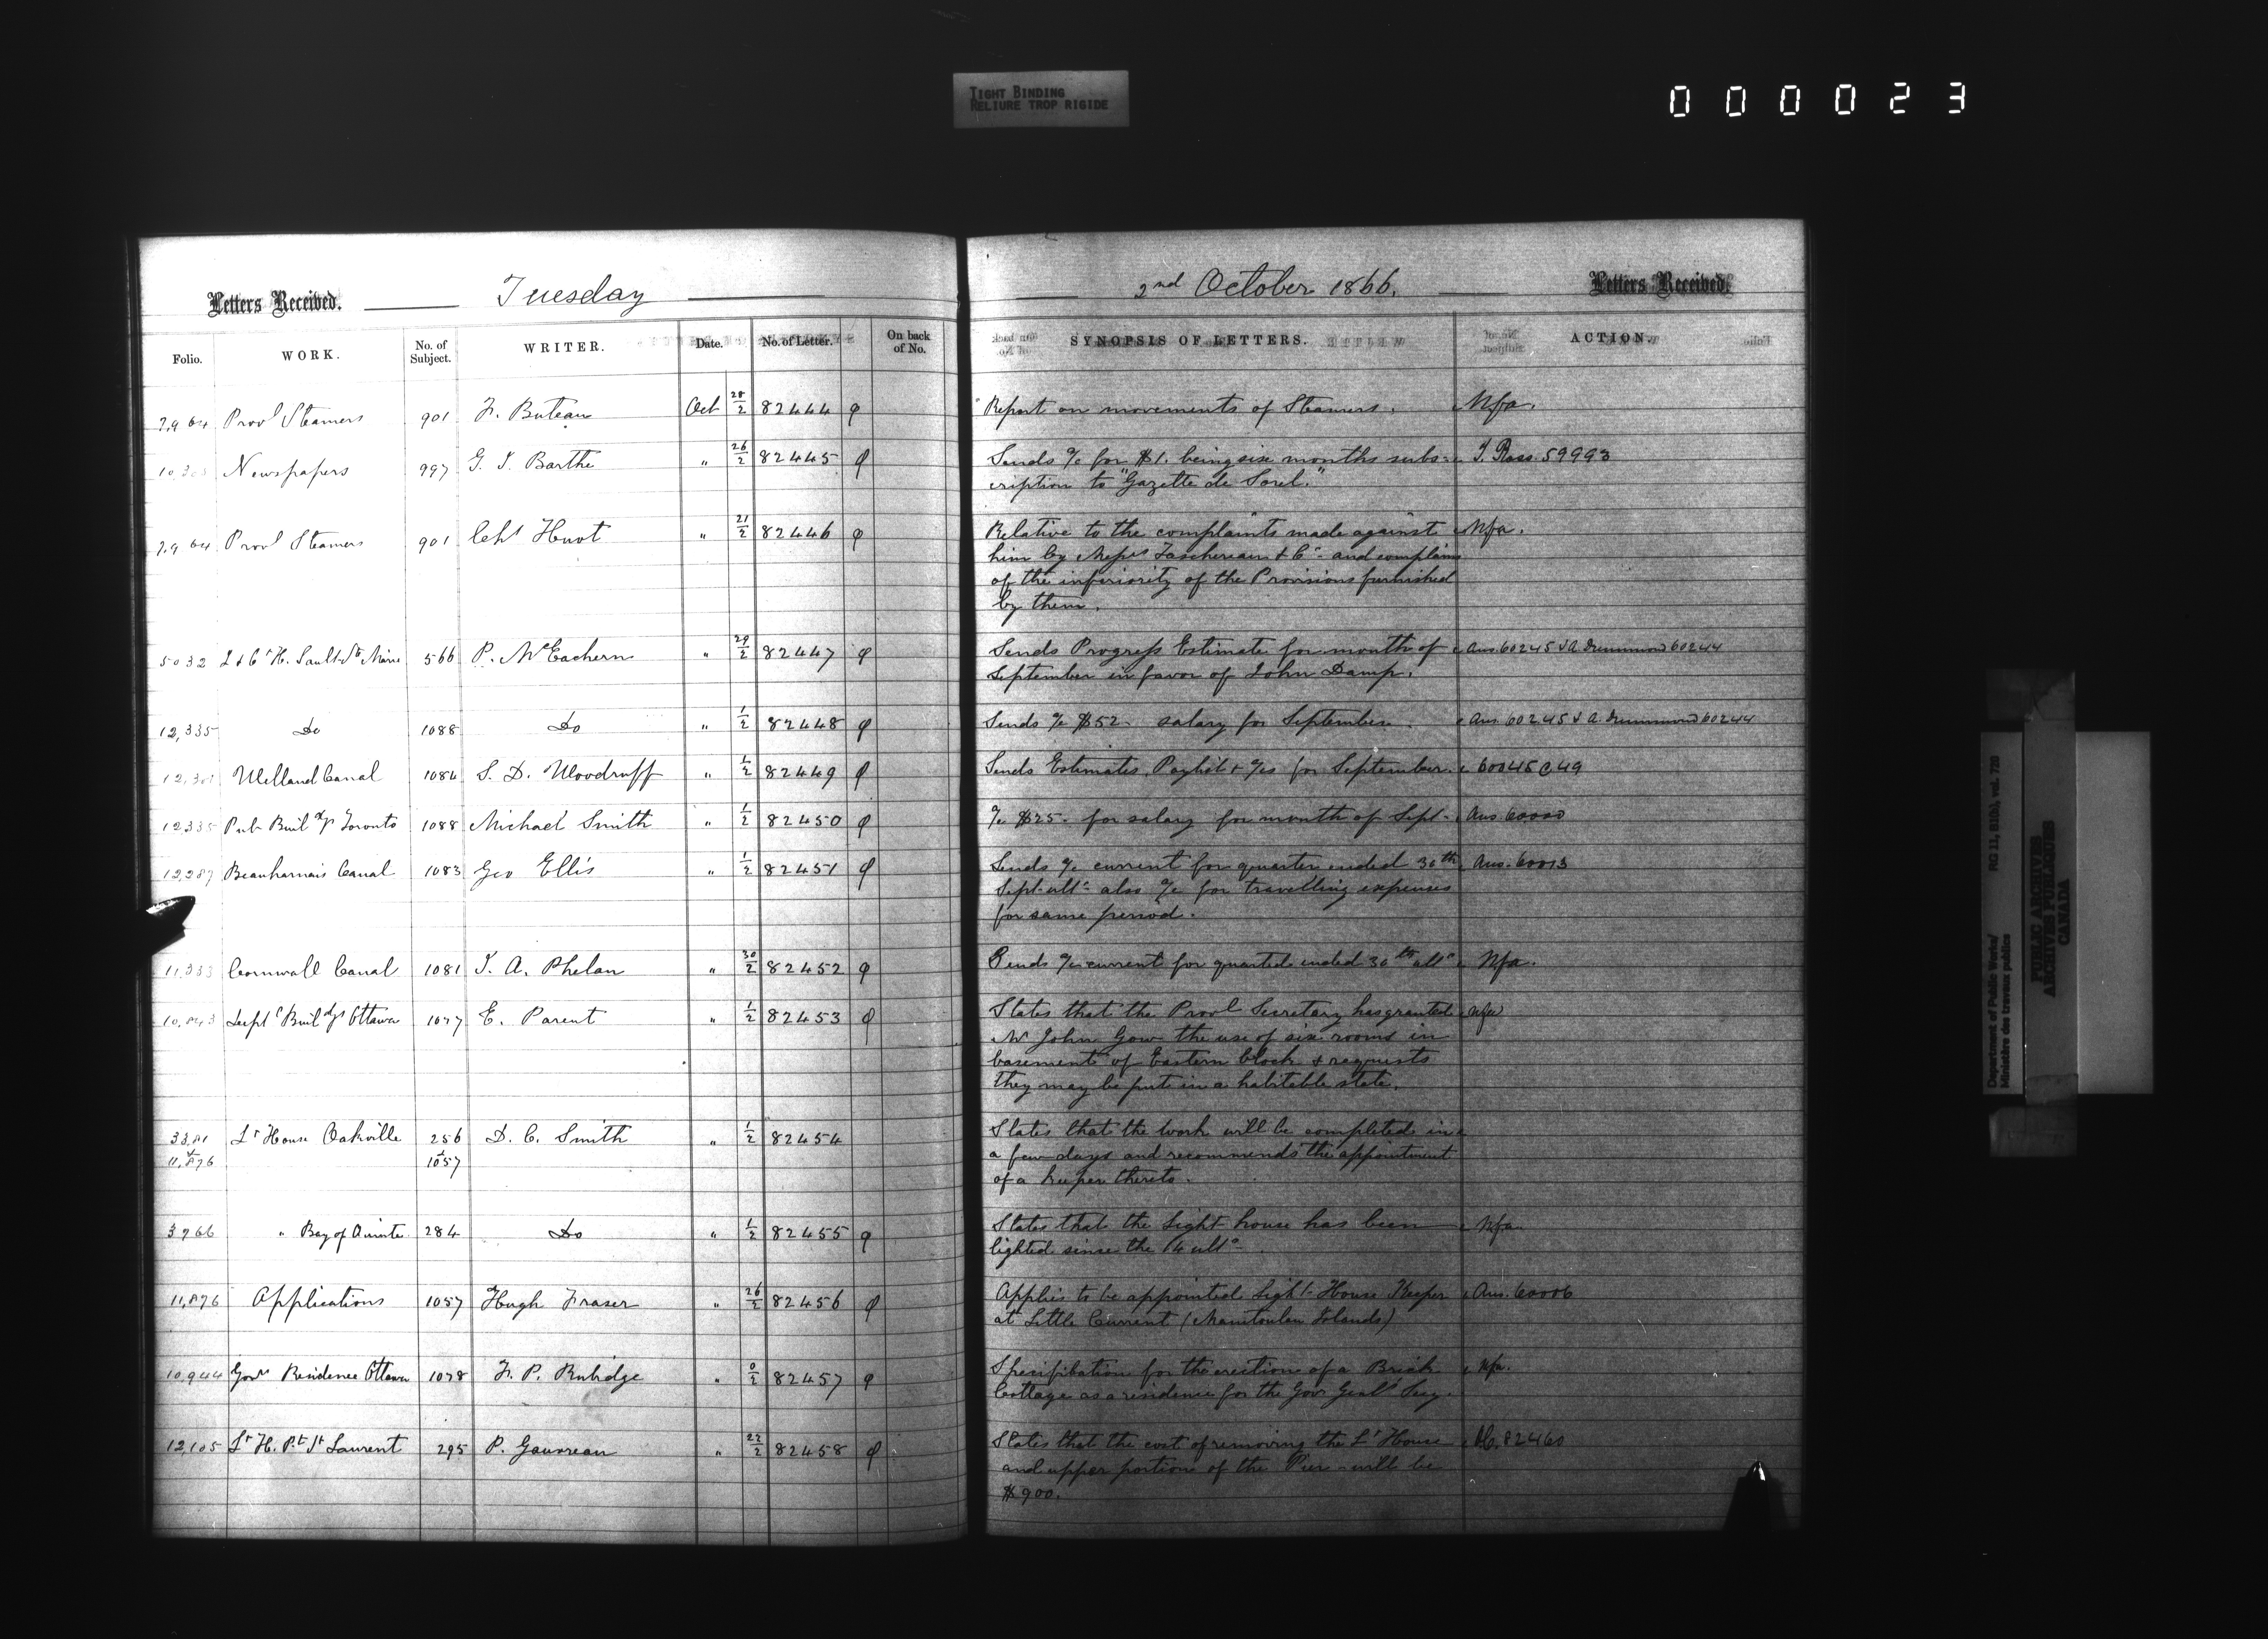 TIGHT BINDING
RELIURE TROP RIGIDE
000023
Letters Received. Tuesday
Folio. WORK. No. of Subject. WRITER. Date. No. of Letter. On back of No.
7,964 Provl Steamers 901 F. Buteau Oct 28/2 82444
Newspapers 997 G. I. Barthe " 26/2 82445
7,964 Provl Steamers 901 Chs Huot " 21/2 82446
5032 L & Ct H. Sault Ste Marie 566 P. McEachern " 29/2 82447
12,335 Do 1088 Do " 1/2 82448
12,301 Welland Canal 1084 S. D. Woodruff " 1/2 82449
12335 Pub Buildgs Toronto 1088 Michael Smith " 1/2 82450
12,287 Beauharnois Canal 1083 Geo Ellis " 1/2 82451
11,333 Cornwall Canal 1081 J. A. Phelan " 30/2 82452
10,843 Deptl Buildgs Ottawa 1077 E. Parent " 1/2 82453
3381 Lt House Oakville 256 D. C. Smith " 1/2 82454
& 11,876 & 1057
3766 " Bay of Quinte 284 Do " 1/2 82455
11,876 Applications 1057 Hugh Fraser " 26/2 82456
10,944 Govrs Residence Ottawa 1078 F. P. Rubidge " 0/2 82457
12,105 Lt H. Pt St Laurent 295 P. Gauvreau " 22/2 82458
2nd October 1866. Letters Received.
SYNOPSIS OF LETTERS. ACTION.
Report on movements of Steamers. Nfa.
Sends a/c for $1. being six months subs- T. Ross 59993
cription to "Gazette de Sorel."
Relative to the complaints made against Nfa.
him by Messrs Taschereau & Co - and complains
of the inferiority of the Provisions furnished
by them.
Sends Progress Estimate for month of Ans. 60245 & A. Drummond 60244
September in favor of John Damp.
Sends a/c $52 - salary for September. Ans. 60245 & A. Drummond 60244
Sends Estimates, Paylist & a/cs for September. 60045 C 49
a/c $25 - for salary for month of Sept - Ans. 60020
Sends a/c current for quarter ended 30th Ans. 60013
Sept. ulto also a/c for travelling expenses
for same period.
Sends a/c current for quarter ended 30th ulto Nfa.
States that the Provl Secretary has granted Nfa
Mr John Gow the use of six rooms in
basement of Eastern block & requests
they may be put in a habitable state.
States that the work will be completed in
a few days and recommends the appointment
of a keeper thereto.
States that the Light house has been Nfa.
lighted since the 14 ulto
Applies to be appointed Light House Keeper Ans. 60006
at Little Current (Manitoulin Islands)
Specification for the erection of a Brick Nfa.
Cottage as a residence for the Govr Genls Secy.
States that the cost of removing the Lt House 82460
and upper portion of the Pier - will be
$900.
Department of Public Works/ RG 11, B1(b), vol. 720
Ministère des travaux publics
PUBLIC ARCHIVES
ARCHIVES PUBLIQUES
CANADA